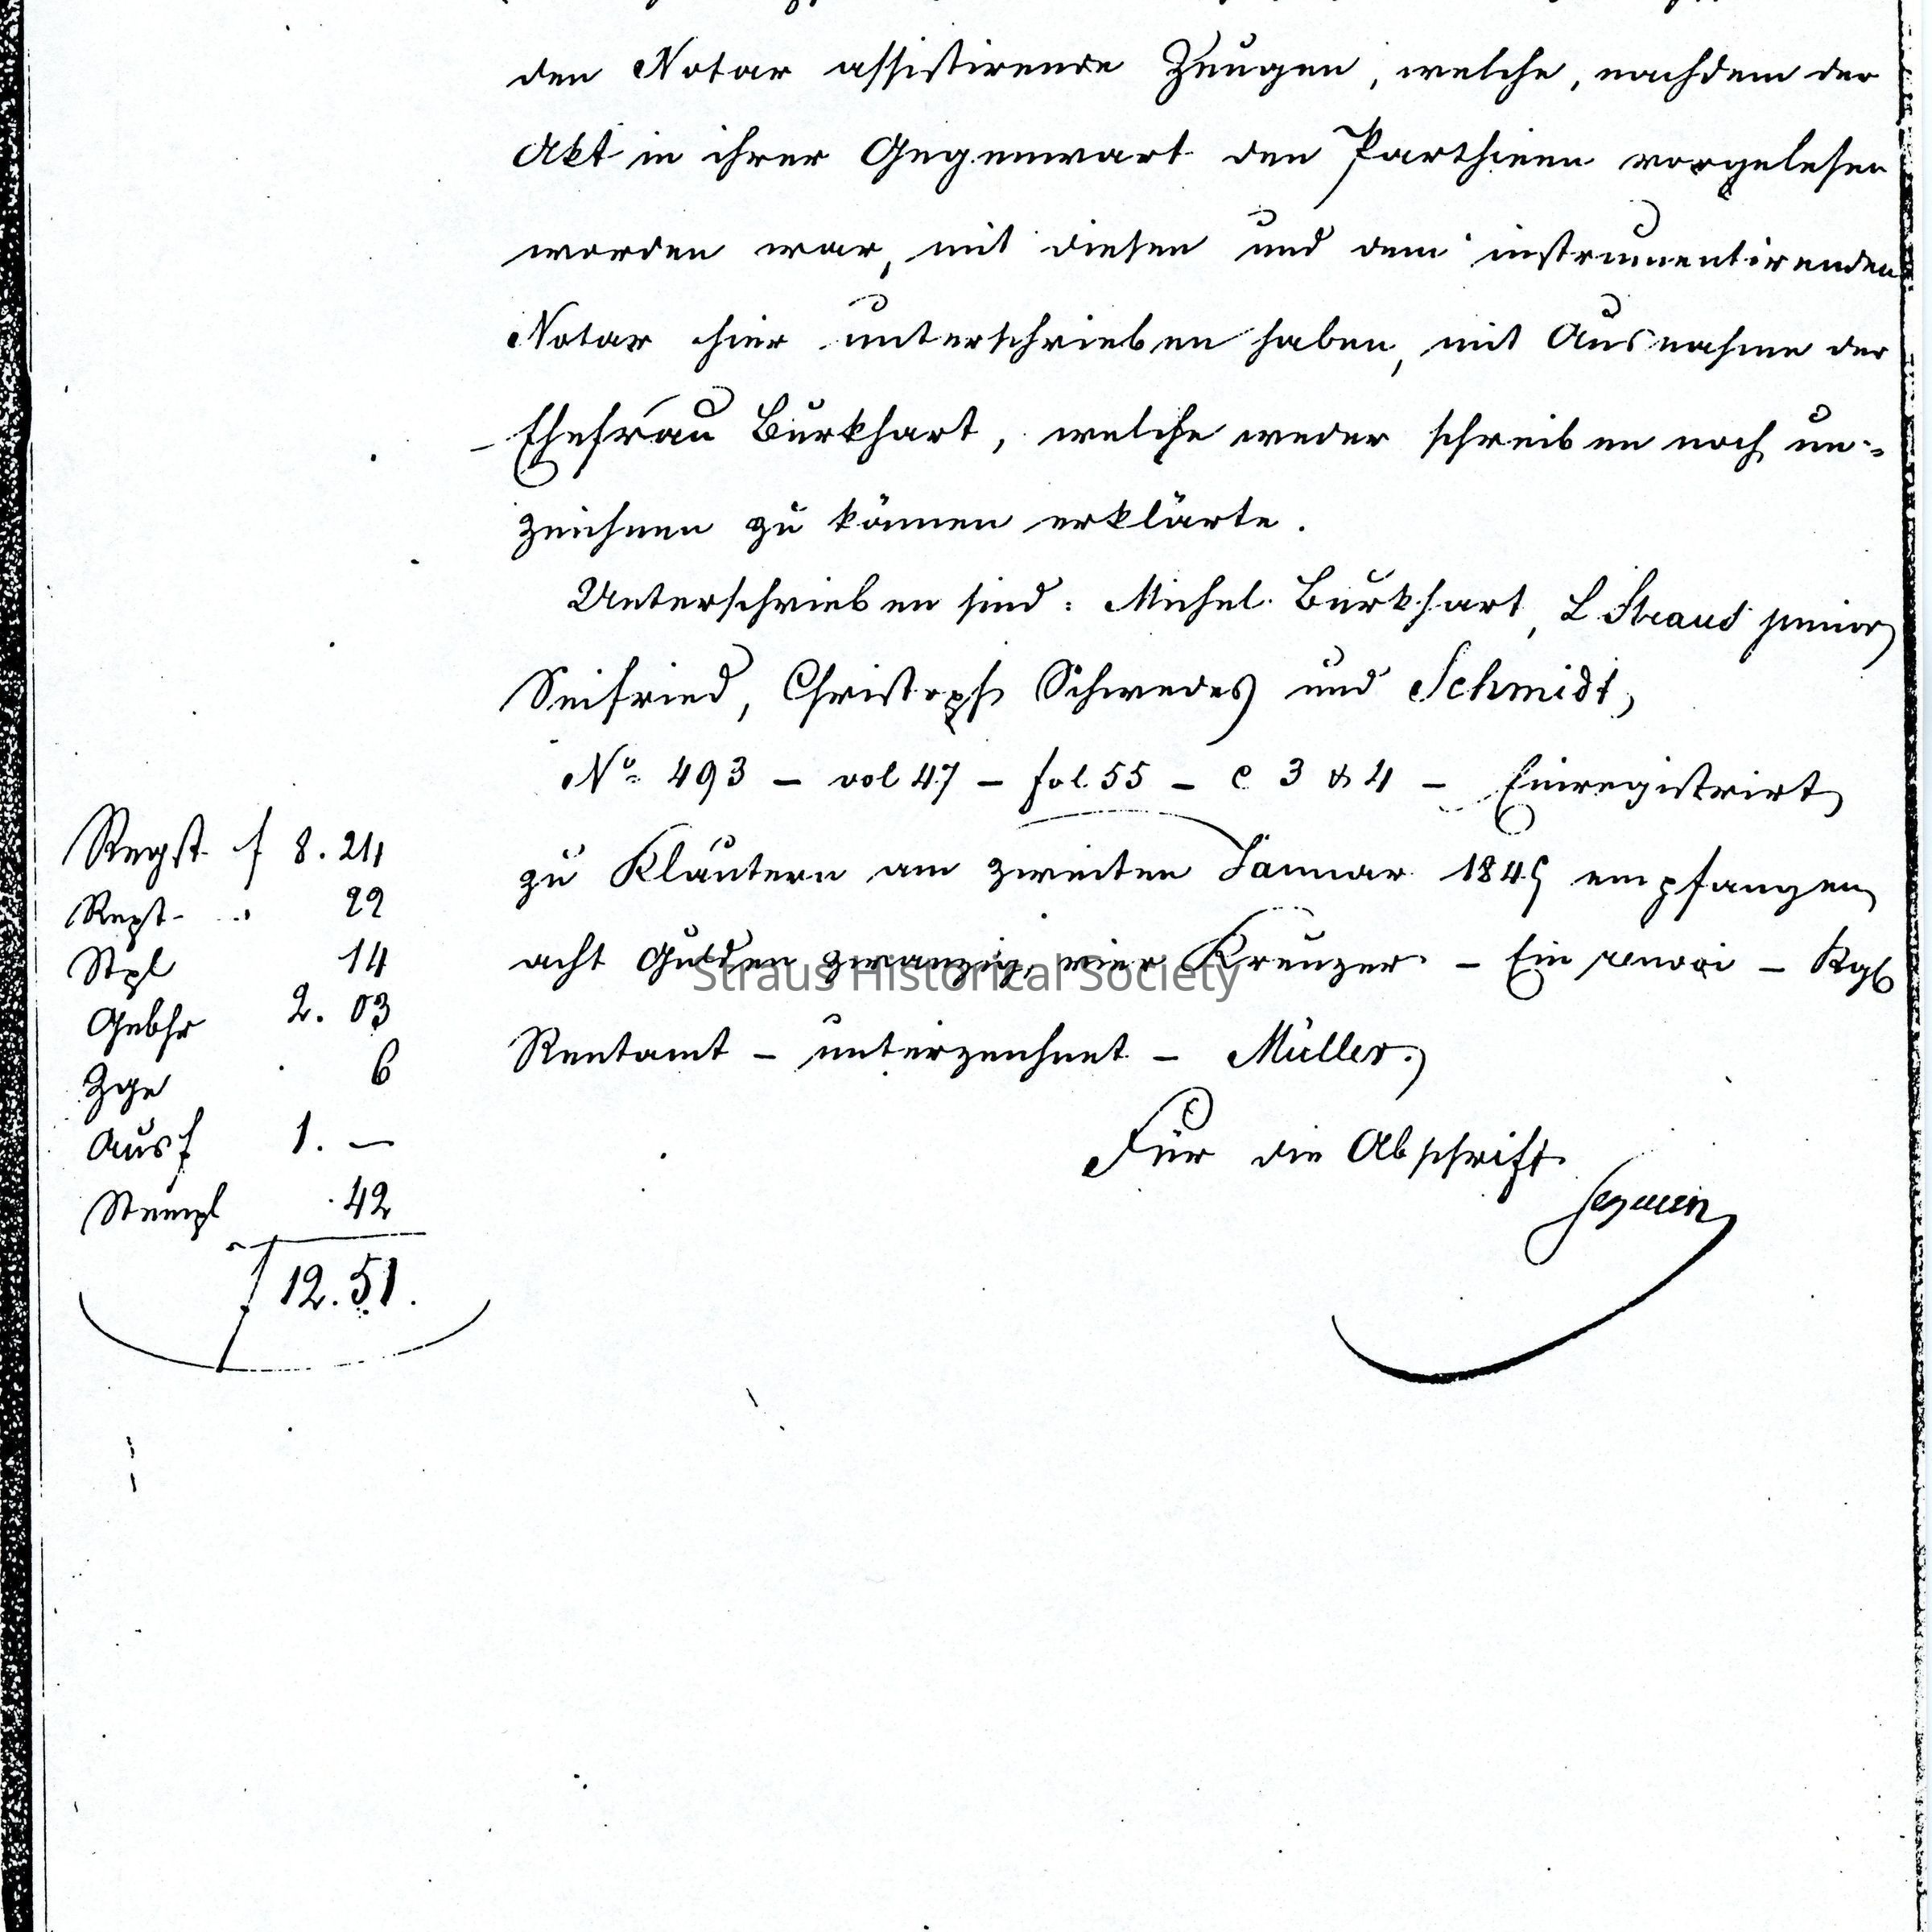 den Notar assistirende Zeugen, welche, nachdem der
Akt in ihrer Gegenwart den Parthieen vorgelesen
worden war, mit diesen und dem instrumentirenden
Notar hier unterschrieben haben, mit Ausnahme der
Ehefrau Burkhart, welche weder schreiben noch un-
zeichnen zu können erklärte.
Unterschrieben sind: Michel Burkhart, L Straus junior
Seifried, Christoph Schwedes und Schmidt,
No 493 – vol 47 – fol 55 – c 3 & 4 – Einregistrirt
zu Klautern am zweiten Januar 1845 empfangen
acht Gulden zwanzig vier Kreuzer – Ein renvoi – Kgl
Rentamt – unterzeichnet – Müller.
Für die Abschrift
Regst f 8.24
Rept 22
Stpl 14
Gebhr 2.03
Zge 6
Ausf 1. –
Stempl 42
f 12.51.
Straus Historical Society